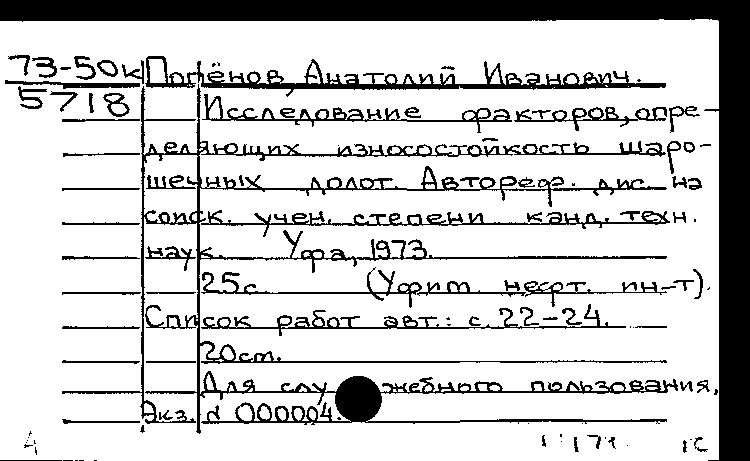 73-50к Попёнов, Анатолий Иванович.
5718 Исследование факторов, опре-
деляющих износостойкость шаро-
шечных долот. Автореф. дис. на
соиск. учен. степени канд. техн.
наук. Уфа, 1973.
25с. (Уфим. нефт. ин-т).
Список работ авт.: с. 22-24.
20см.
Для служебного пользования,
Экз. № 000004.